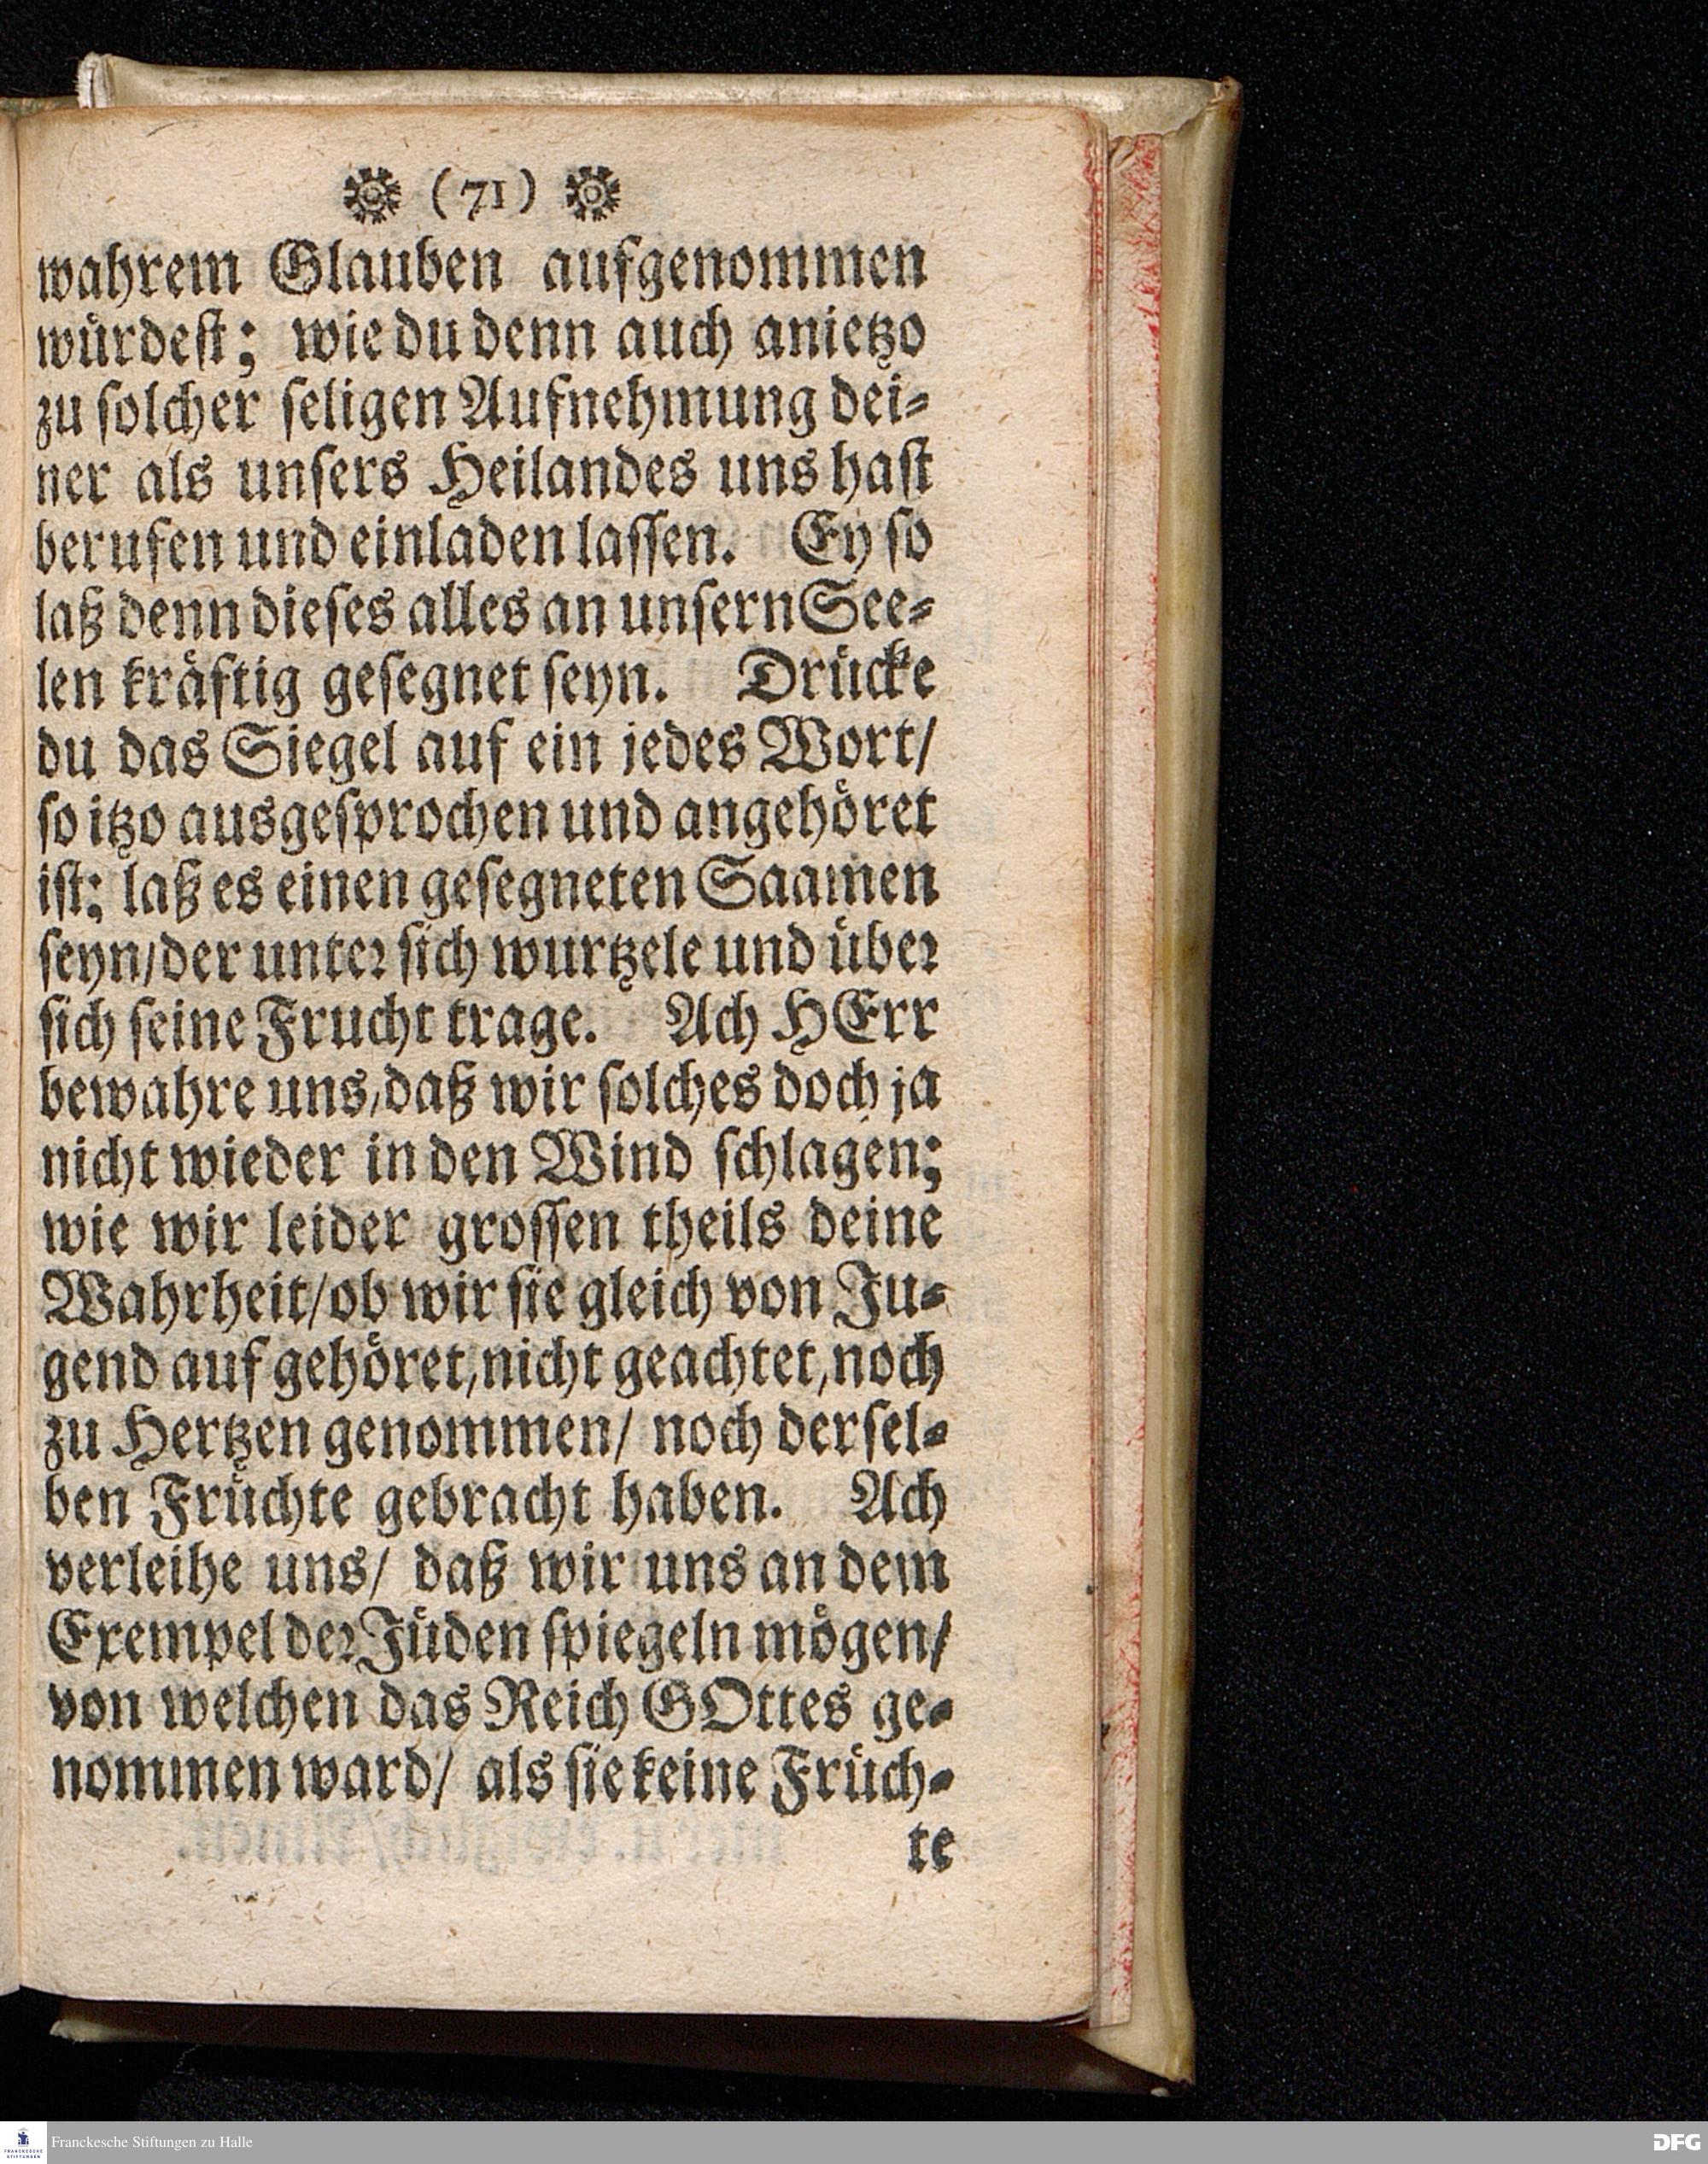 (71)
wahrem Glauben aufgenommen
würdeſt; wie du denn auch anietzo
zu ſolcher ſeligen Aufnehmung dei⸗
ner als unſers Heilandes uns haſt
berufen und einladen laſſen. Ey ſo
laß denn dieſes alles an unſern See⸗
len kräftig geſegnet ſeyn. Drücke
du das Siegel auf ein jedes Wort/
ſo itzo ausgeſprochen und angehöret
iſt; laß es einen geſegneten Saamen
ſeyn/der unter ſich wurtzele und über
ſich ſeine Frucht trage. Ach HErr
bewahre uns,daß wir ſolches doch ja
nicht wieder in den Wind ſchlagen;
wie wir leider groſſen theils deine
Wahrheit/ob wir ſie gleich von Ju⸗
gend auf gehöret,nicht geachtet,noch
zu Hertzen genommen/ noch derſel⸗
ben Früchte gebracht haben. Ach
verleihe uns/ daß wir uns an dem
Exempel der Jüden ſpiegeln mögen/
von welchen das Reich GOttes ge⸗
nommen ward/ als ſie keine Früch⸗
te
FRANCKESCHE
STIFTUNGEN
Franckesche Stiftungen zu Halle
DFG